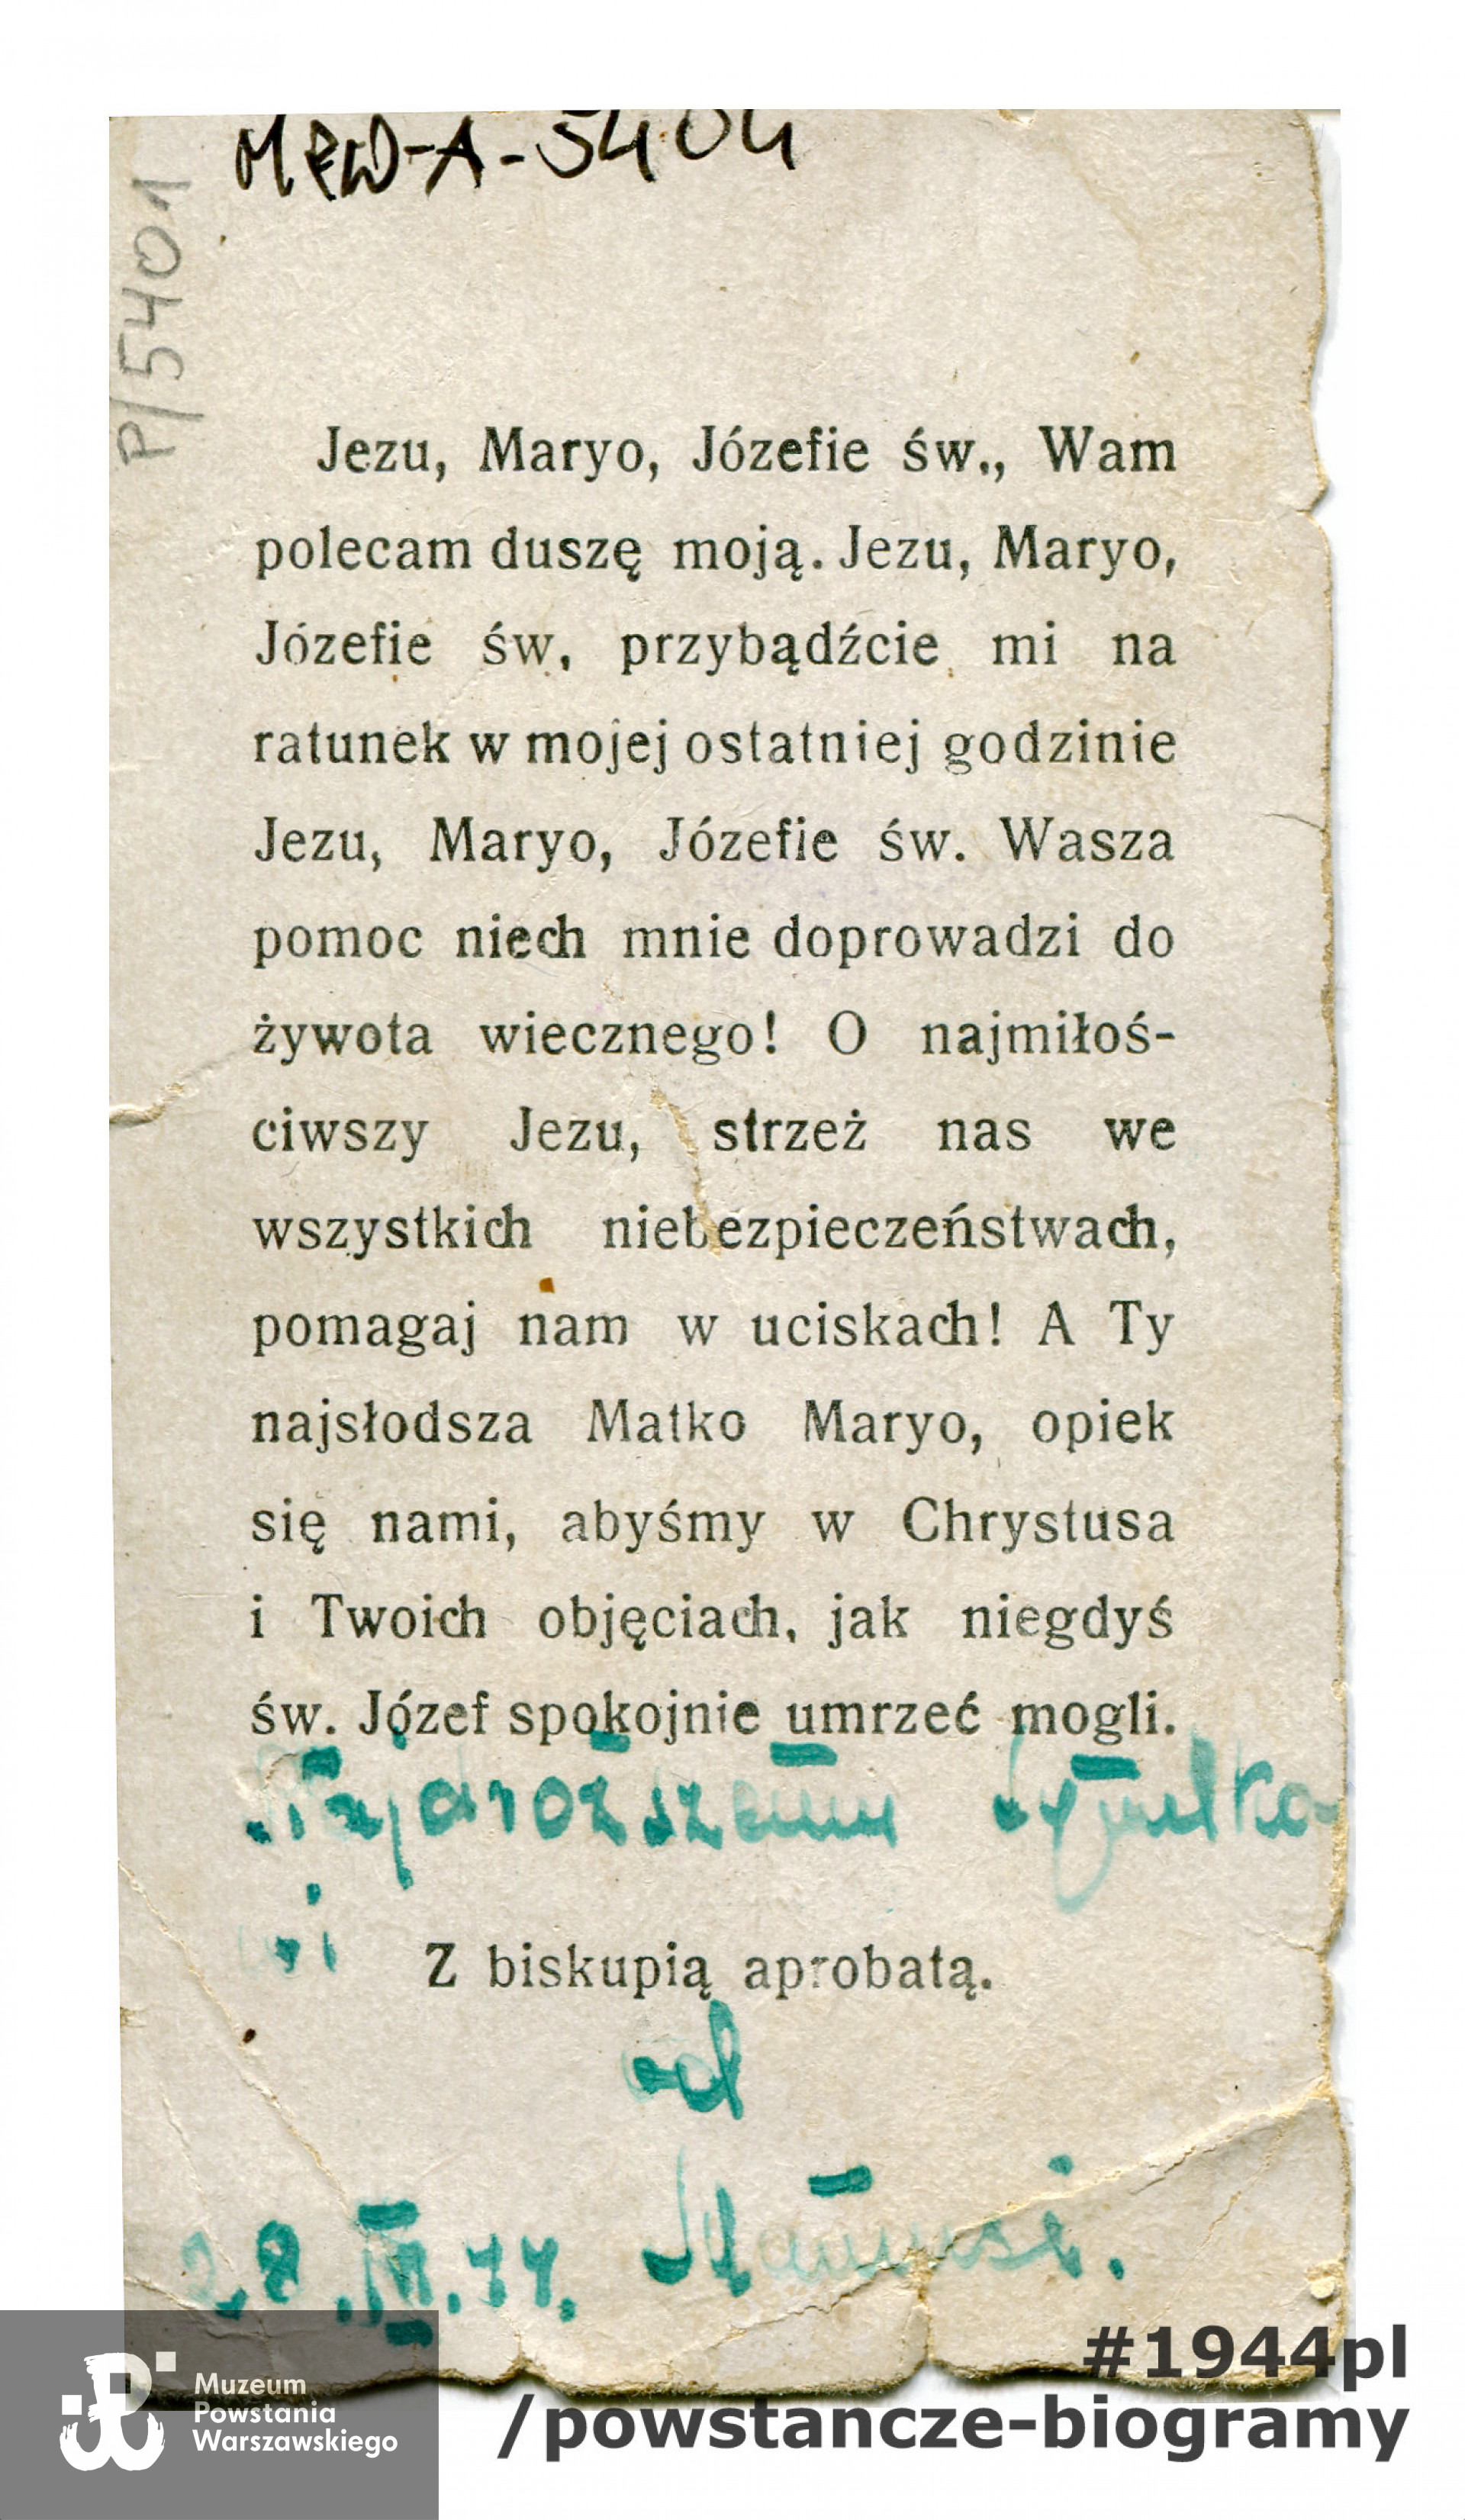 MPW-A-5404
P/5401
Jezu, Maryo, Józefie św., Wam
polecam duszę moją. Jezu, Maryo,
Józefie św. przybądźcie mi na
ratunek w mojej ostatniej godzinie
Jezu, Maryo, Józefie św. Wasza
pomoc niech mnie doprowadzi do
żywota wiecznego! O najmiłoś-
ciwszy Jezu, strzeż nas we
wszystkich niebezpieczeństwach,
pomagaj nam w uciskach! A Ty
najsłodsza Matko Maryo, opiek
się nami, abyśmy w Chrystusa
i Twoich objęciach, jak niegdyś
św. Józef spokojnie umrzeć mogli.
Najdroższemu
Z biskupią aprobatą.
od
Muzeum
Powstania
Warszawskiego
#1944pl
/powstancze-biogramy